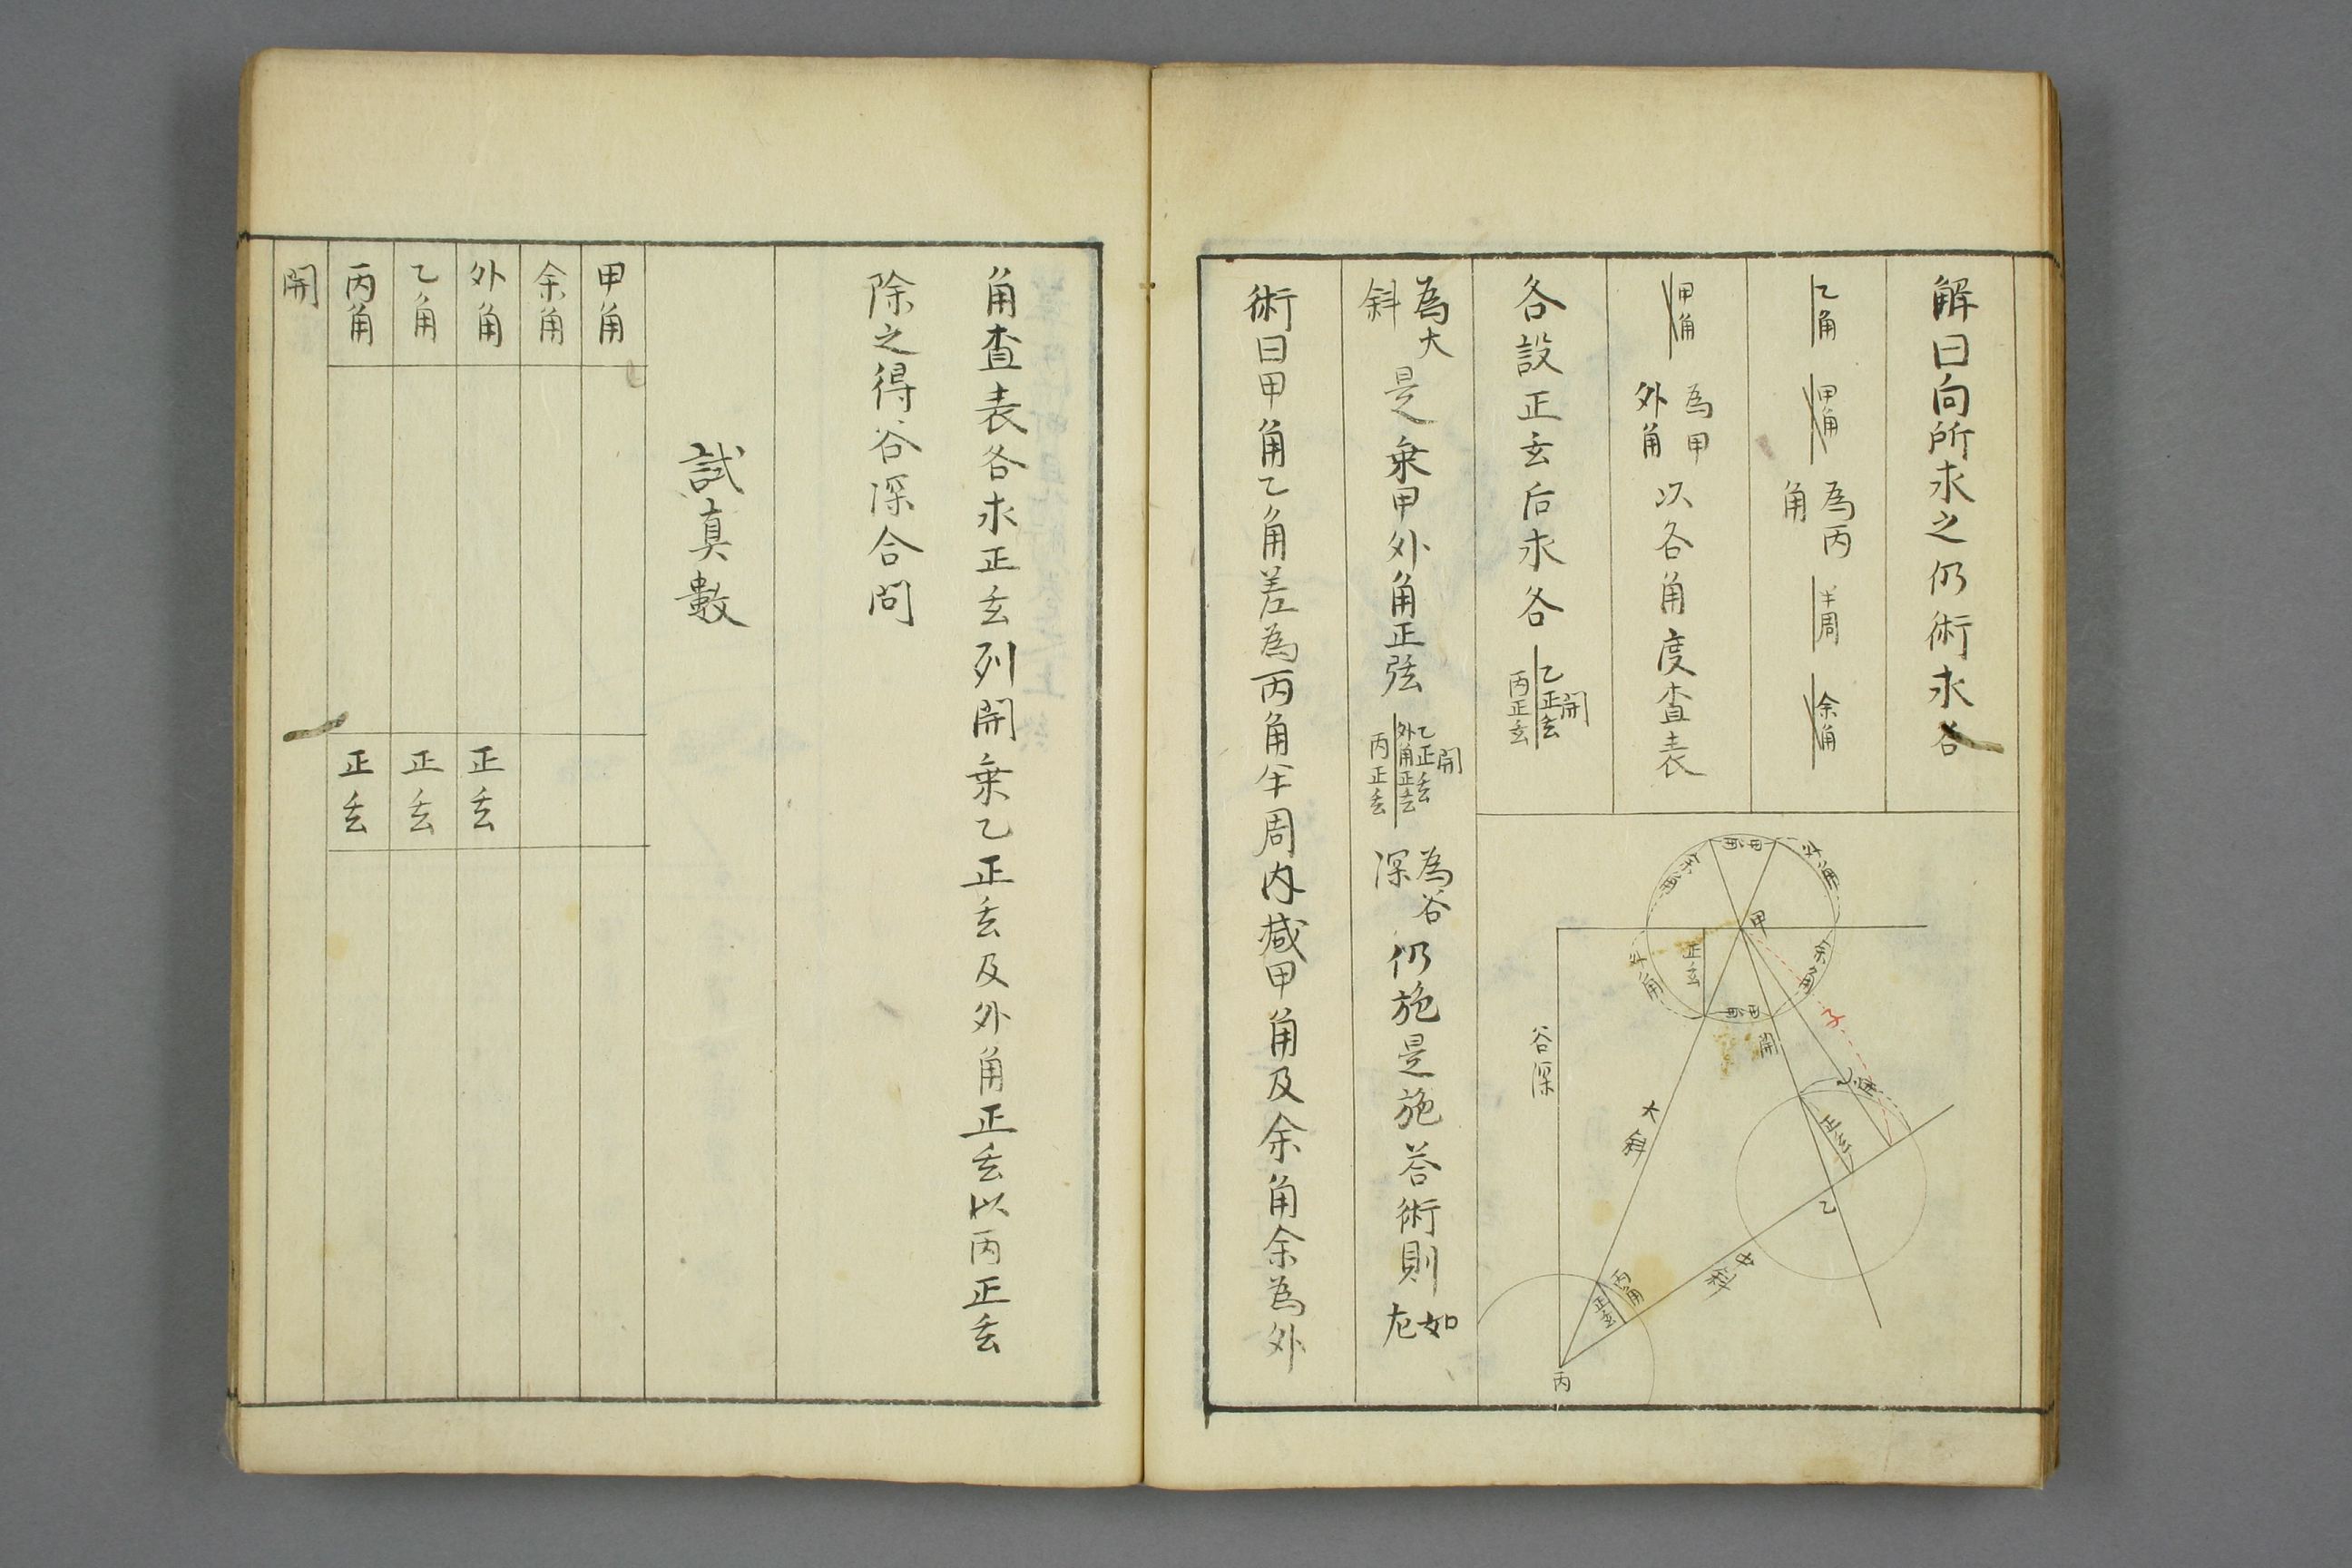 解曰向所求之仍術求各
乙角 甲角 為丙角 半周 余角
甲角 為甲外角 次各角度査表
各設正玄后求各 開乙正玄 丙正玄
為大斜 是乗甲外角正弦 開乙正玄外角正玄 丙正玄 為谷深 仍施是施荅術則如左
術曰甲角乙角差為丙角半周内减甲角及余角余為外
甲角
余角
半角
甲
正玄
余角
半角
開
子
谷深
大斜
乙角
正玄
乙
中斜
丙角
正玄
丙
角査表各求正玄列開乗乙正玄及外角正玄以丙正玄
除之得谷深合問
試真數
甲角
余角
外角 正玄
乙角 正玄
丙角 正玄
開